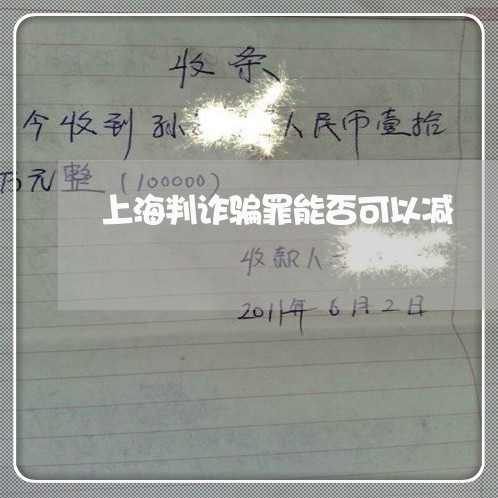 收条
今收到孙 人民币壹拾
万元整(100000)
上海判诈骗罪能否可以减
收款人
2011年6月2日